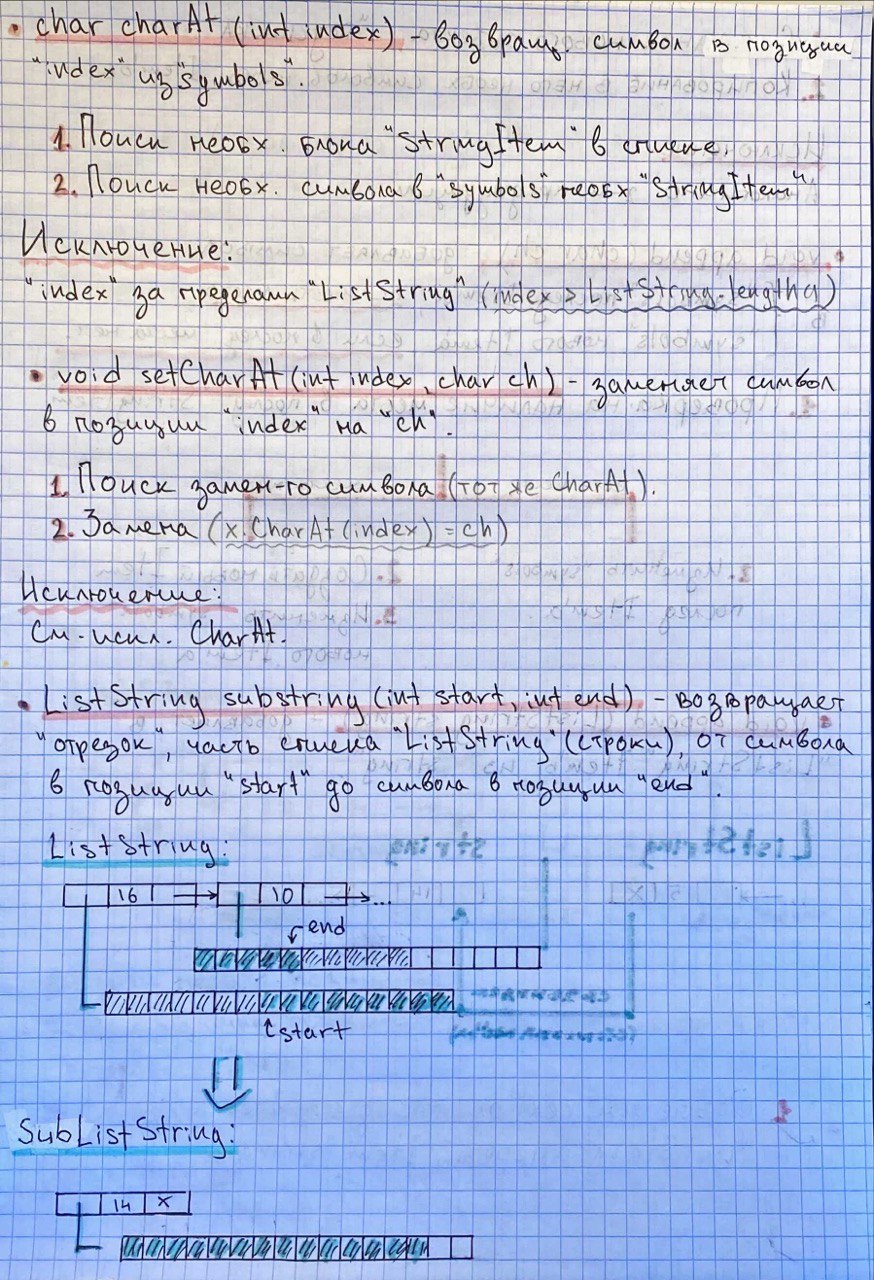 • char charAt (int index) - возвращ. символ в позиции
"index" из "symbols".
1. Поиск необх. блока "StringItem" в списке.
2. Поиск необх. символа в "symbols" необх "StringItem".
Исключение:
"index" за пределами "ListString" (index > ListString.length())
• void setCharAt (int index, char ch) - заменяет символ
в позиции "index" на "ch".
1. Поиск замен-го символа (тот же CharAt).
2. Замена (x.CharAt(index) = ch)
Исключение:
См. искл. CharAt.
• ListString substring (int start, int end) - возвращает
"отрезок", часть списка "ListString" (строки), от символа
в позиции "start" до символа в позиции "end".
ListString:
16 10 ...
end
start
SubListString:
14 x